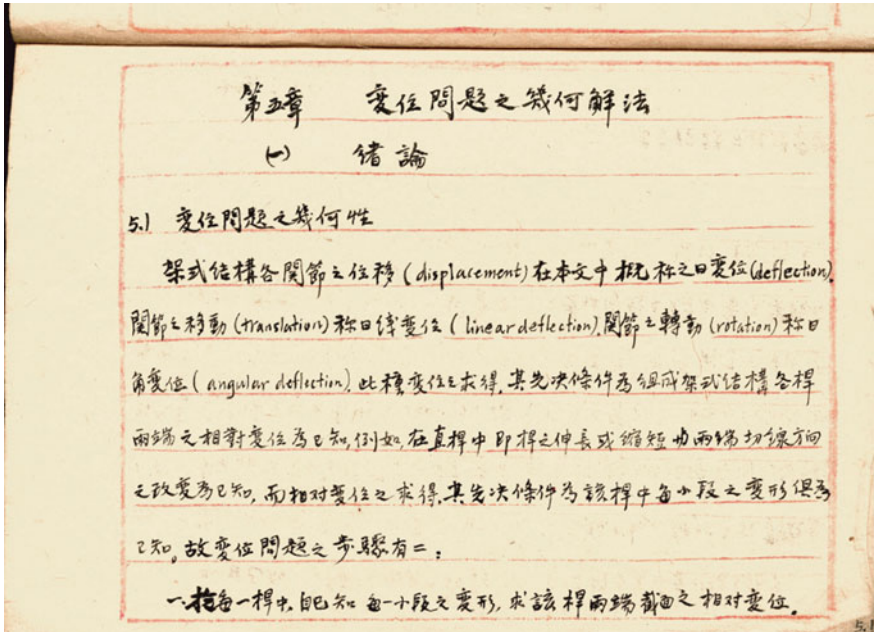 第五章 变位問題之幾何解法
(一) 緒論
5.1 变位問題之幾何性
架式结構各関節之位移(displacement)在本文中概称之曰变位(deflection).
関節之移動(translation)称曰线变位(linear deflection),関節之轉動(rotation)称曰
角变位(angular deflection).此種变位之求得,其先决條件為组成架式结構各桿
兩端之相對变位為已知,例如,在直桿中即桿之伸長或縮短 兩端切線方向
之改变為已知,而相对变位之求得,其先决條件為該桿中每小段之变形俱為
已知,故变位問題之步驟有二:
一.在每一桿中,自已知每一小段之变形,求該桿兩端截面之相对变位.
5.1